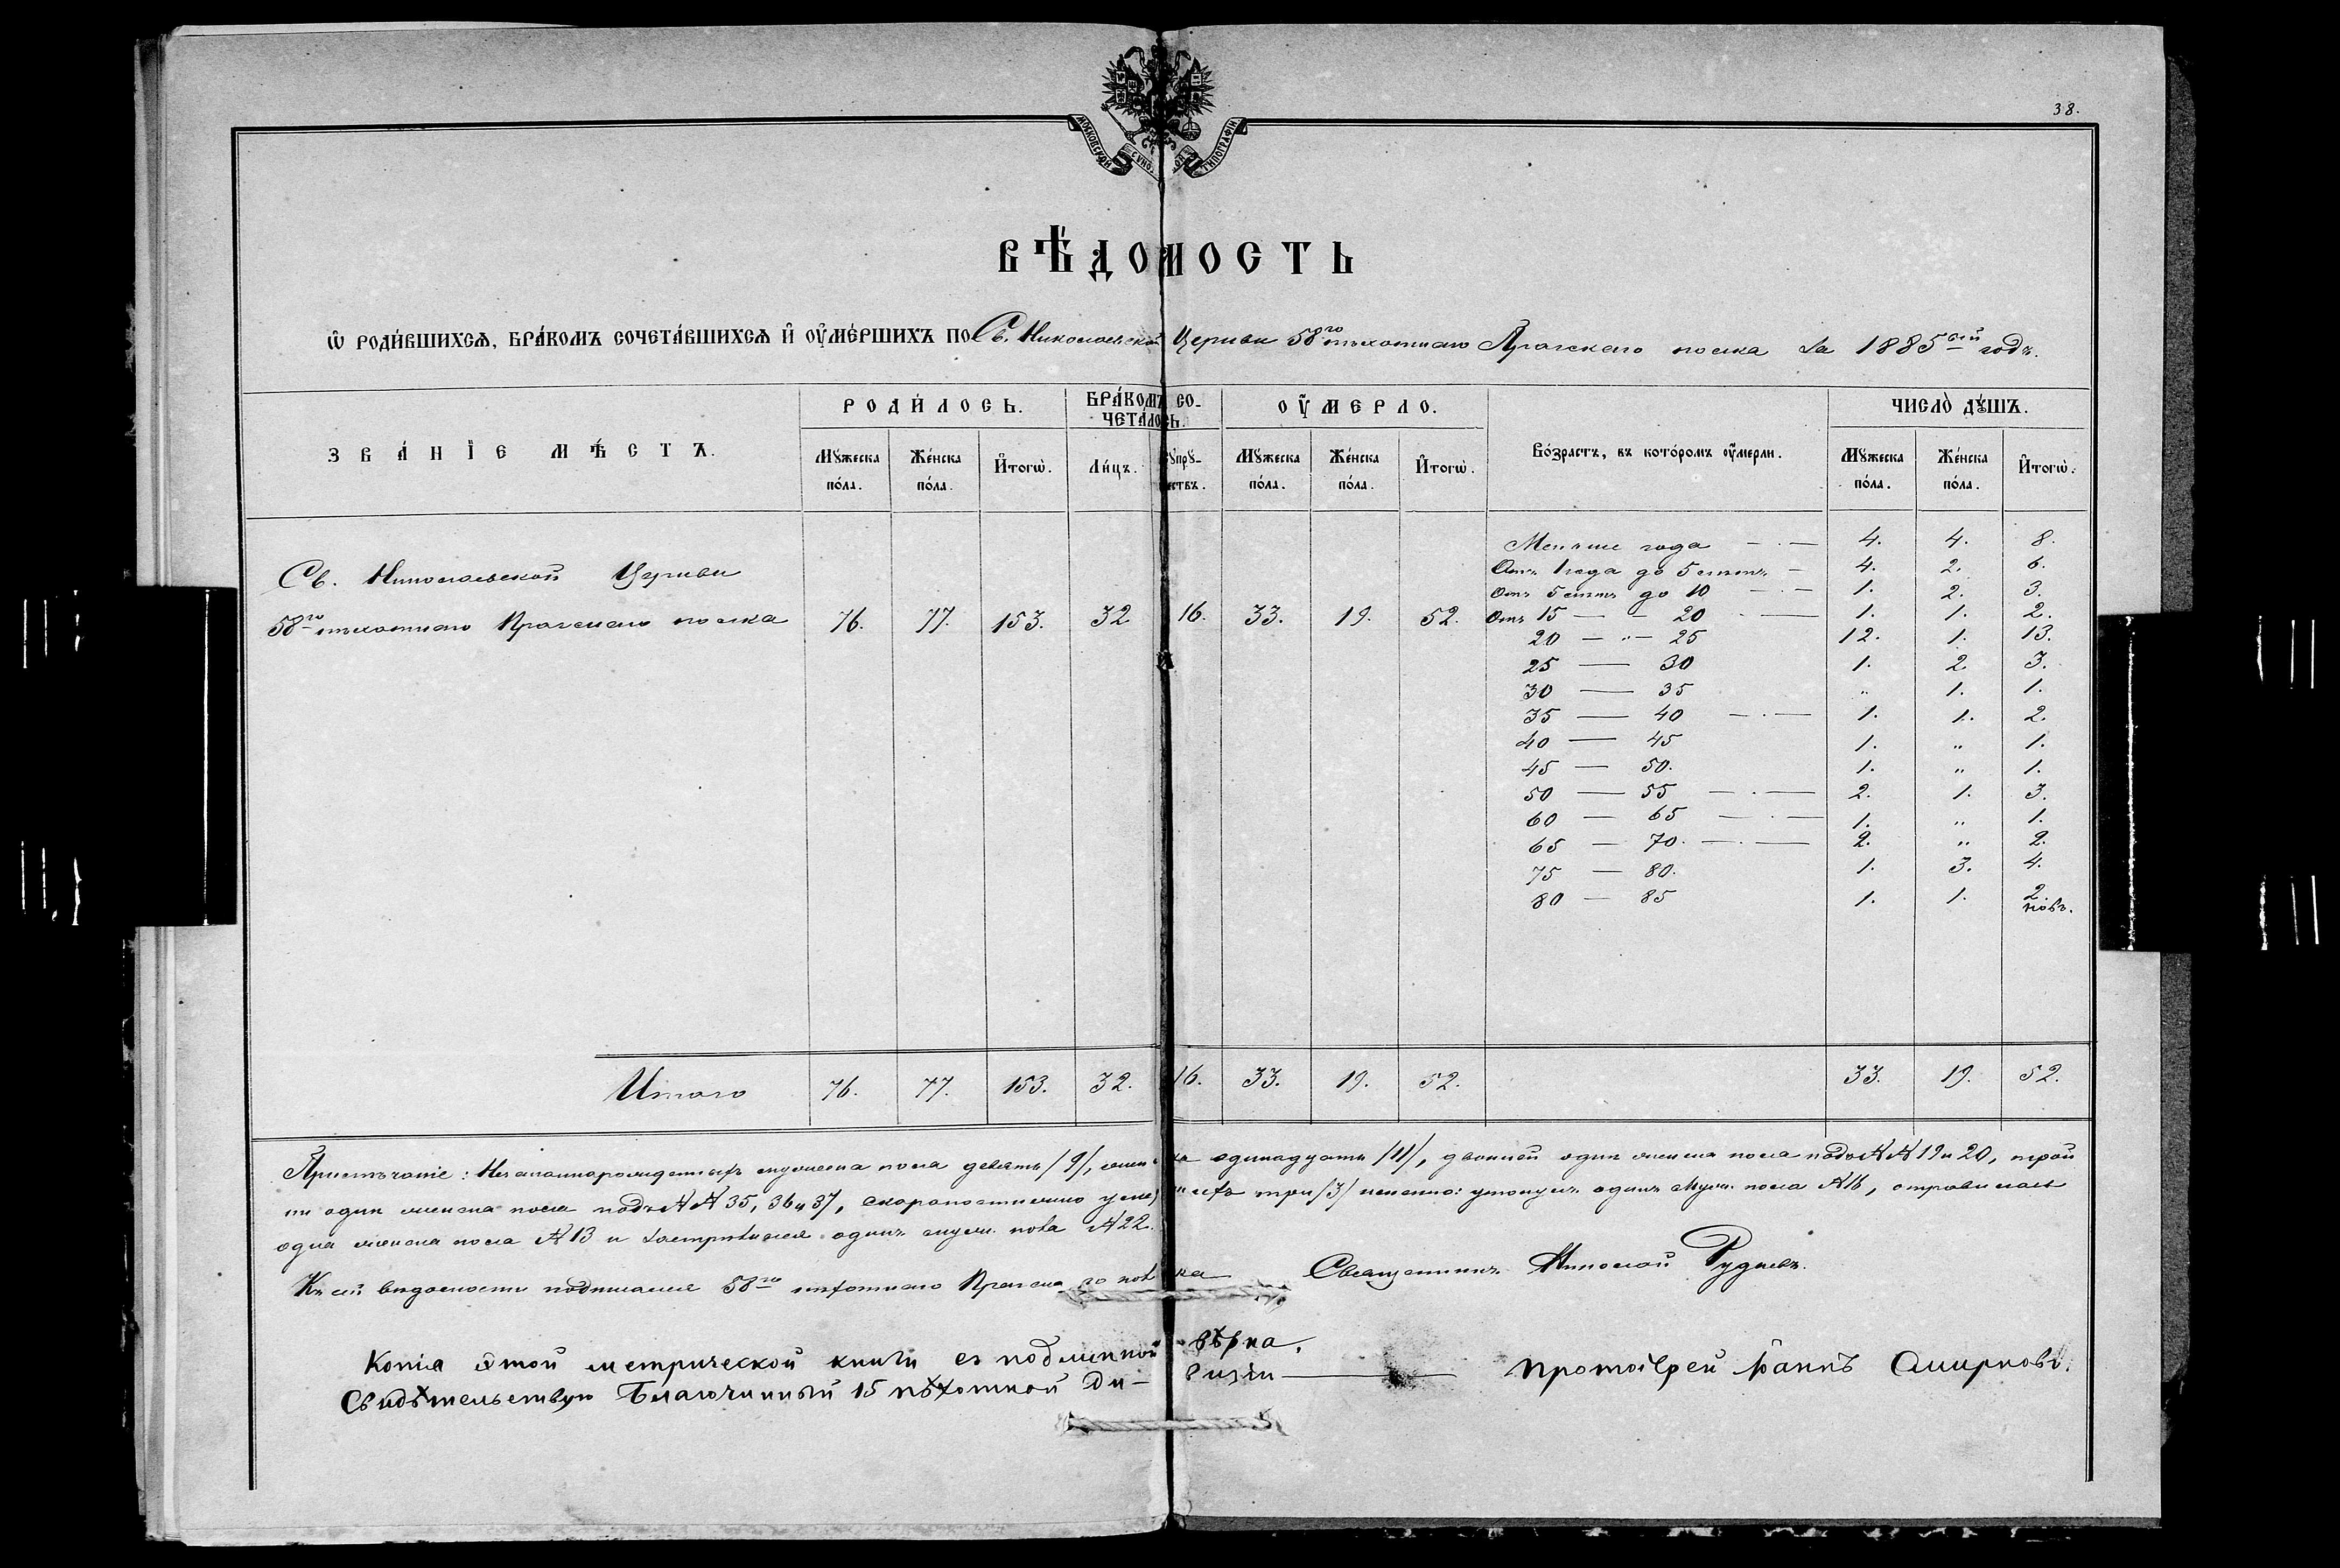 38.
МОСКОВСКОЙ СѴНОД. ТИПОГРАФІИ
ВѢ́ДОМОСТЬ
Ѡ҆ РОДИ́ВШИХСѦ, БРА́КОМЪ СОЧЕТА́ВШИХСѦ И҆ ОУ҆МЕ́РШИХЪ ПО Св. Николаевской Церкви 58го пѣхотнаго Прагскаго полка За 1885ый годъ.
ЗВА́НІЕ МѢ́СТЪ.
РОДИ́ЛОСЬ.
БРА́КОМЪ СОЧЕТА́ЛОСЬ.
ОУ҆́МЕРЛО.
Во́зрастъ, въ кото́ромъ оу҆́мерли.
ЧИСЛО̀ ДꙊ́ШЪ.
Мꙋ́жеска по́ла. Же́нска по́ла. И҆тогѡ̀. Ли́цъ. Сꙋпрꙋ́жествъ. Мꙋ́жеска по́ла. Же́нска по́ла. И҆тогѡ̀. Мꙋ́жеска по́ла. Же́нска по́ла. И҆тогѡ̀.
Св. Николаевской Церкви
58го пѣхотнаго Прагскаго полка 76. 77. 153. 32 16. 33. 19. 52.
Меньше года — . — 4. 4. 8.
Отъ 1 года до 5 лѣтъ — 4. 2. 6.
Отъ 5 лѣтъ до 10 — . — 1. 2. 3.
Отъ 15 — — 20 . — 1. 1. 2.
20 — „ — 25 12. 1. 13.
25 — 30 1. 2. 3.
30 — 35 „ 1. 1.
35 — 40 — . — 1. 1. 2.
40 — 45 1. „ 1.
45 — 50. 1. „ 1.
50 — 55 — . — 2. 1. 3.
60 — 65 — . — 1. „ 1.
65 — 70. — . — 2. „ 2.
75 — 80. 1. 3. 4.
80 — 85 1. 1. 2.
Итого 76. 77. 153. 32. 16. 33. 19. 52. 33. 19. 52.
Примѣчаніе: Незаконнорожденныхъ мужеска пола девять /9/, женска одинадцать /11/, двойней одни женска пола подъ №№ 19 и 20, трой
ни одни женска пола подъ №№ 35, 36 и 37, скоропостижно умершихъ три /3/ именно: утонулъ одинъ муж. пола № 16, отравилась
одна женска пола № 13 и застрѣлился одинъ муж. пола № 22.
Къ сей вѣдомости подписался 58го пѣхотнаго Прагскаго полка Священникъ Николай Рудневъ.
Копія этой метрической книги съ подлинной вѣрна.
Свидѣтельствую Благочинный 15 пѣхотной Дивизіи — Протоіерей Іоаннъ Смирновъ.